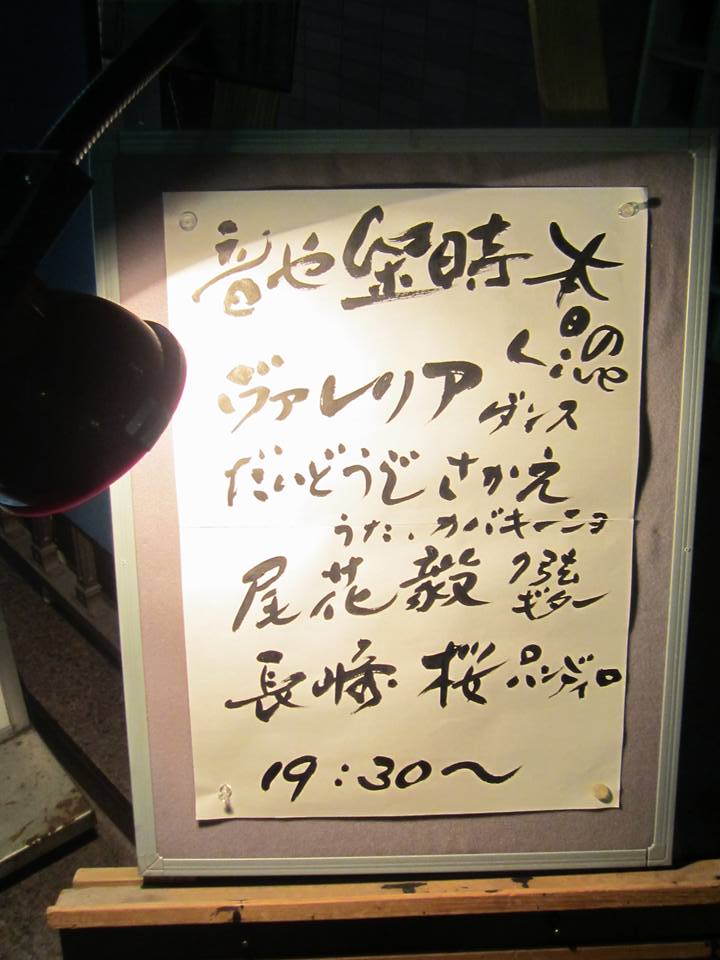 音や金時
ヴァレリア ダンス
だいどうじ さかえ
うた、カバキーニョ
尾花毅 7弦
ギター
長崎 桜 パンデイロ
19:30〜